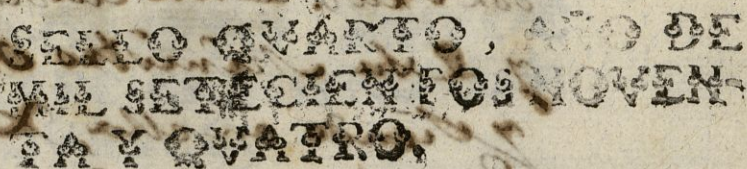 SELLO QVARTO, AÑO DE
MIL SETECIENTOS NOVEN-
TA Y QVATRO.